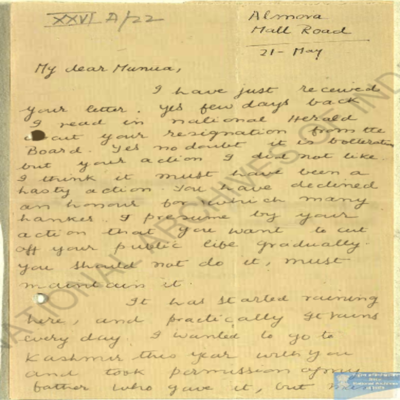 XXVI A/22
Almora
Mall Road
21- May
My dear Munua,
I have just received
your letter. Yes few days back
I read in national Herald
about your resignation from the
Board. Yes no doubt it is botheration
but your action I did not like.
I think it must have been a
hasty action. You have declined
an honour for which many
hanker. I presume by your
action that you want to cut
off your public life gradually.
you should not do it, must
maintain it.
It has started raining
here, and practically it rains
every day. I wanted to go to
Kashmir this year with you
and took permission of my
father who gave it, but
NATIONAL ARCHIVES OF INDIA